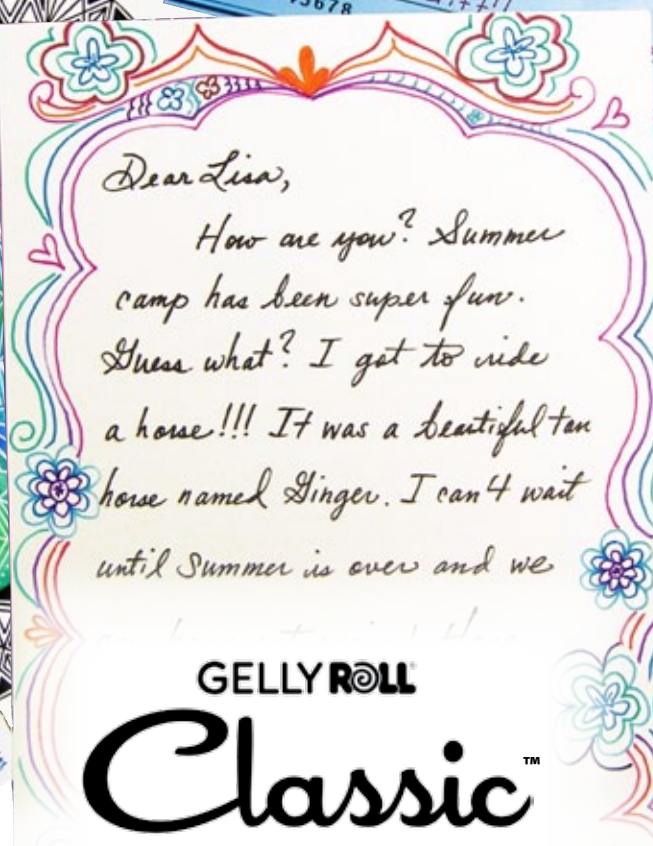 5678
Dear Lisa,
How are you? Summer
camp has been super fun.
Guess what? I got to ride
a horse!!! It was a beautiful tan
horse named Ginger. I can't wait
until Summer is over and we
GELLY ROLL
Classic™